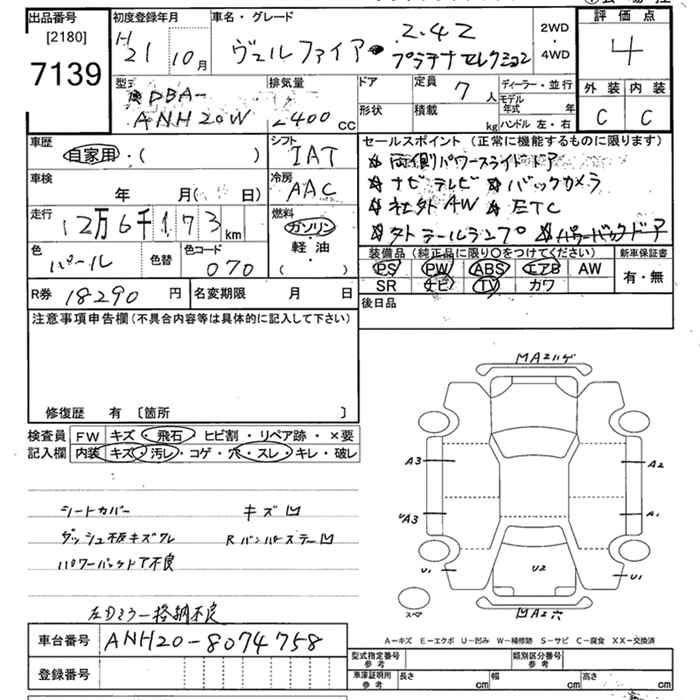 出品番号
[2180]
7139
初度登録年月
H
21 10月
車名・グレード
ヴェルファイア 2.4Z
プラチナセレクション
2WD
4WD
評価点
4
外装 内装
C C
型式
DBA-
ANH20W
排気量
2400 CC
ドア
形状
定員 7 人
積載 kg
ディーラー・並行
モデル年式 年
ハンドル 左・右
車歴
自家用・( )
シフト
IAT
車検
年 月( 日)
冷房
AAC
走行
12万6千173km
燃料
ガソリン
軽・油
( )
色
パール
色替
色コード
070
R券 18290円
名変期限 月 日
セールスポイント(正常に機能するものに限ります)
☆両側パワースライドドア
☆ナビテレビ ☆バックカメラ
☆社外AW ☆ETC
☆外テールランプ ☆パワーバックドア
装備品(純正品に限り○をつけてください)
PS PW ABS エアB AW
SR ナビ TV カワ
新車保証書
有・無
後日品
注意事項申告欄(不具合内容等は具体的に記入して下さい)
修復歴 有 〔箇所 〕
検査員記入欄
FW キズ・飛石・ヒビ割・リペア跡・×要
内装 キズ・汚レ・コゲ・穴・スレ・キレ・破レ
シートカバー キズ凹
ダッシュ板キズクレ RバンパーステーΟ凹
パワーバックドア不良
左Dミラー格納不良
MA2ハゲ
A3
A2
UA3
A1
U1
U2
U1
スペア
凹A2穴
車台番号 ANH20-8074758
登録番号
A-キズ E-エクボ U-凹み W-補修跡 S-サビ C-腐食 XX-交換済
型式指定番号
参考
類別区分番号
参考
車庫証明用
参考
長さ cm
幅 cm
高さ cm